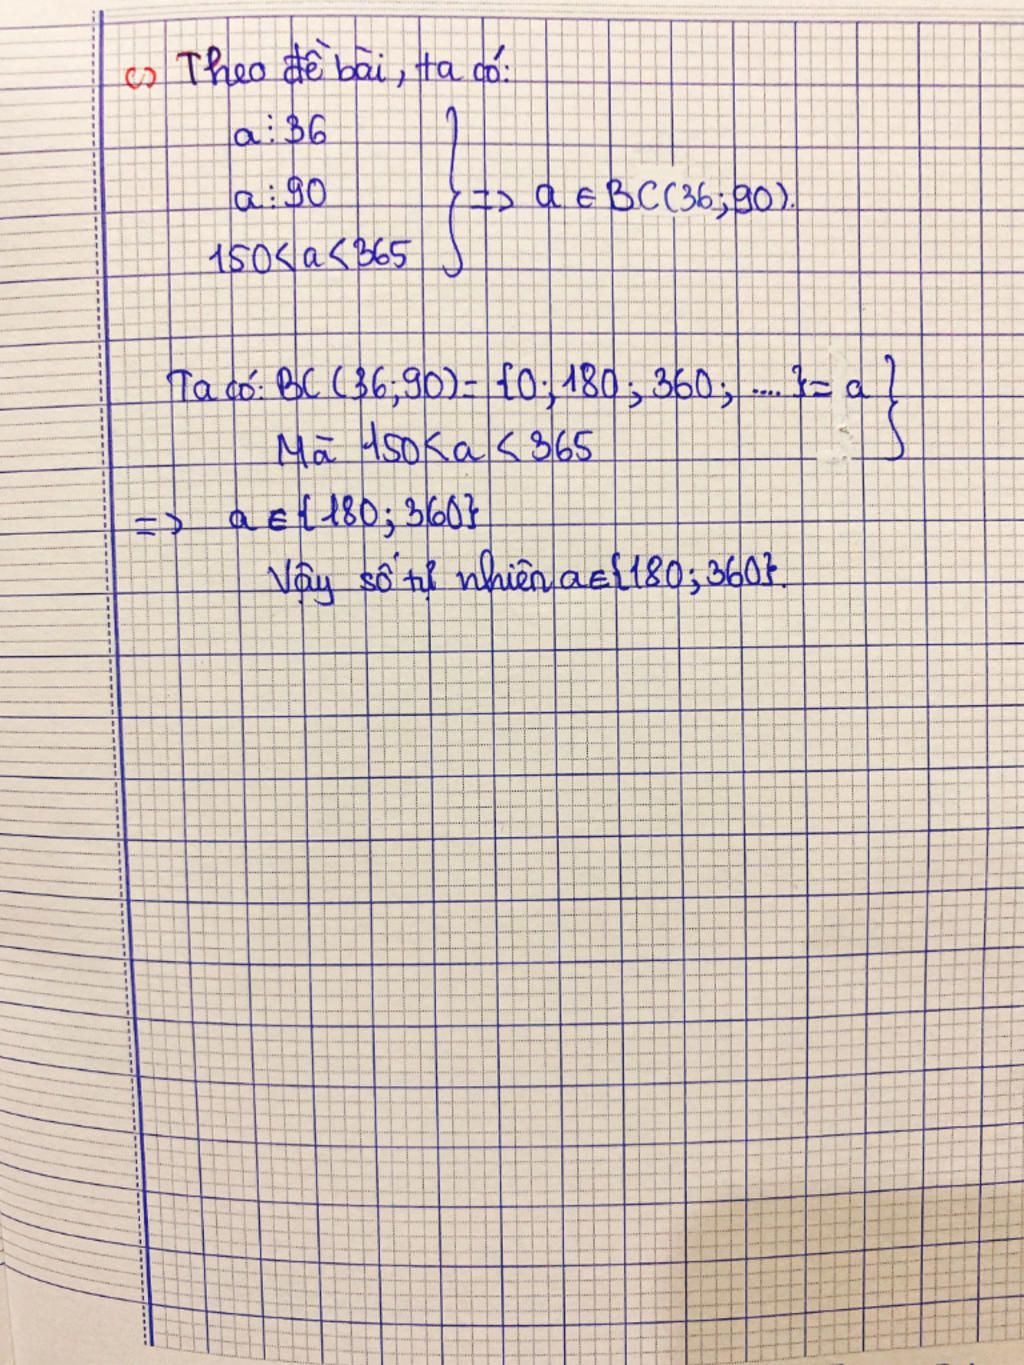 c) Theo đề bài, ta có:
a ⋮ 36
a ⋮ 90
150 < a < 365
} => a ∈ BC(36; 90).
Ta có: BC(36; 90) = {0; 180; 360; .... } = a }
Mà 150 < a < 365
=> a ∈ {180; 360}
Vậy số tự nhiên a ∈ {180; 360}.